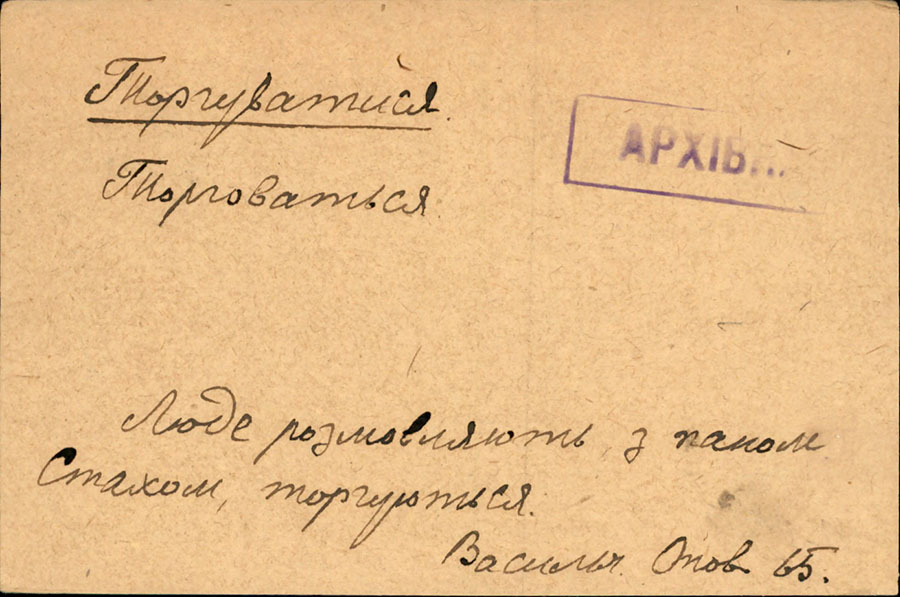 Торгуватися.
АРХІВ
Торговаться.
Люде розмовляють з паном
Стахом, торгуються.
Васильч. Опов. 65.